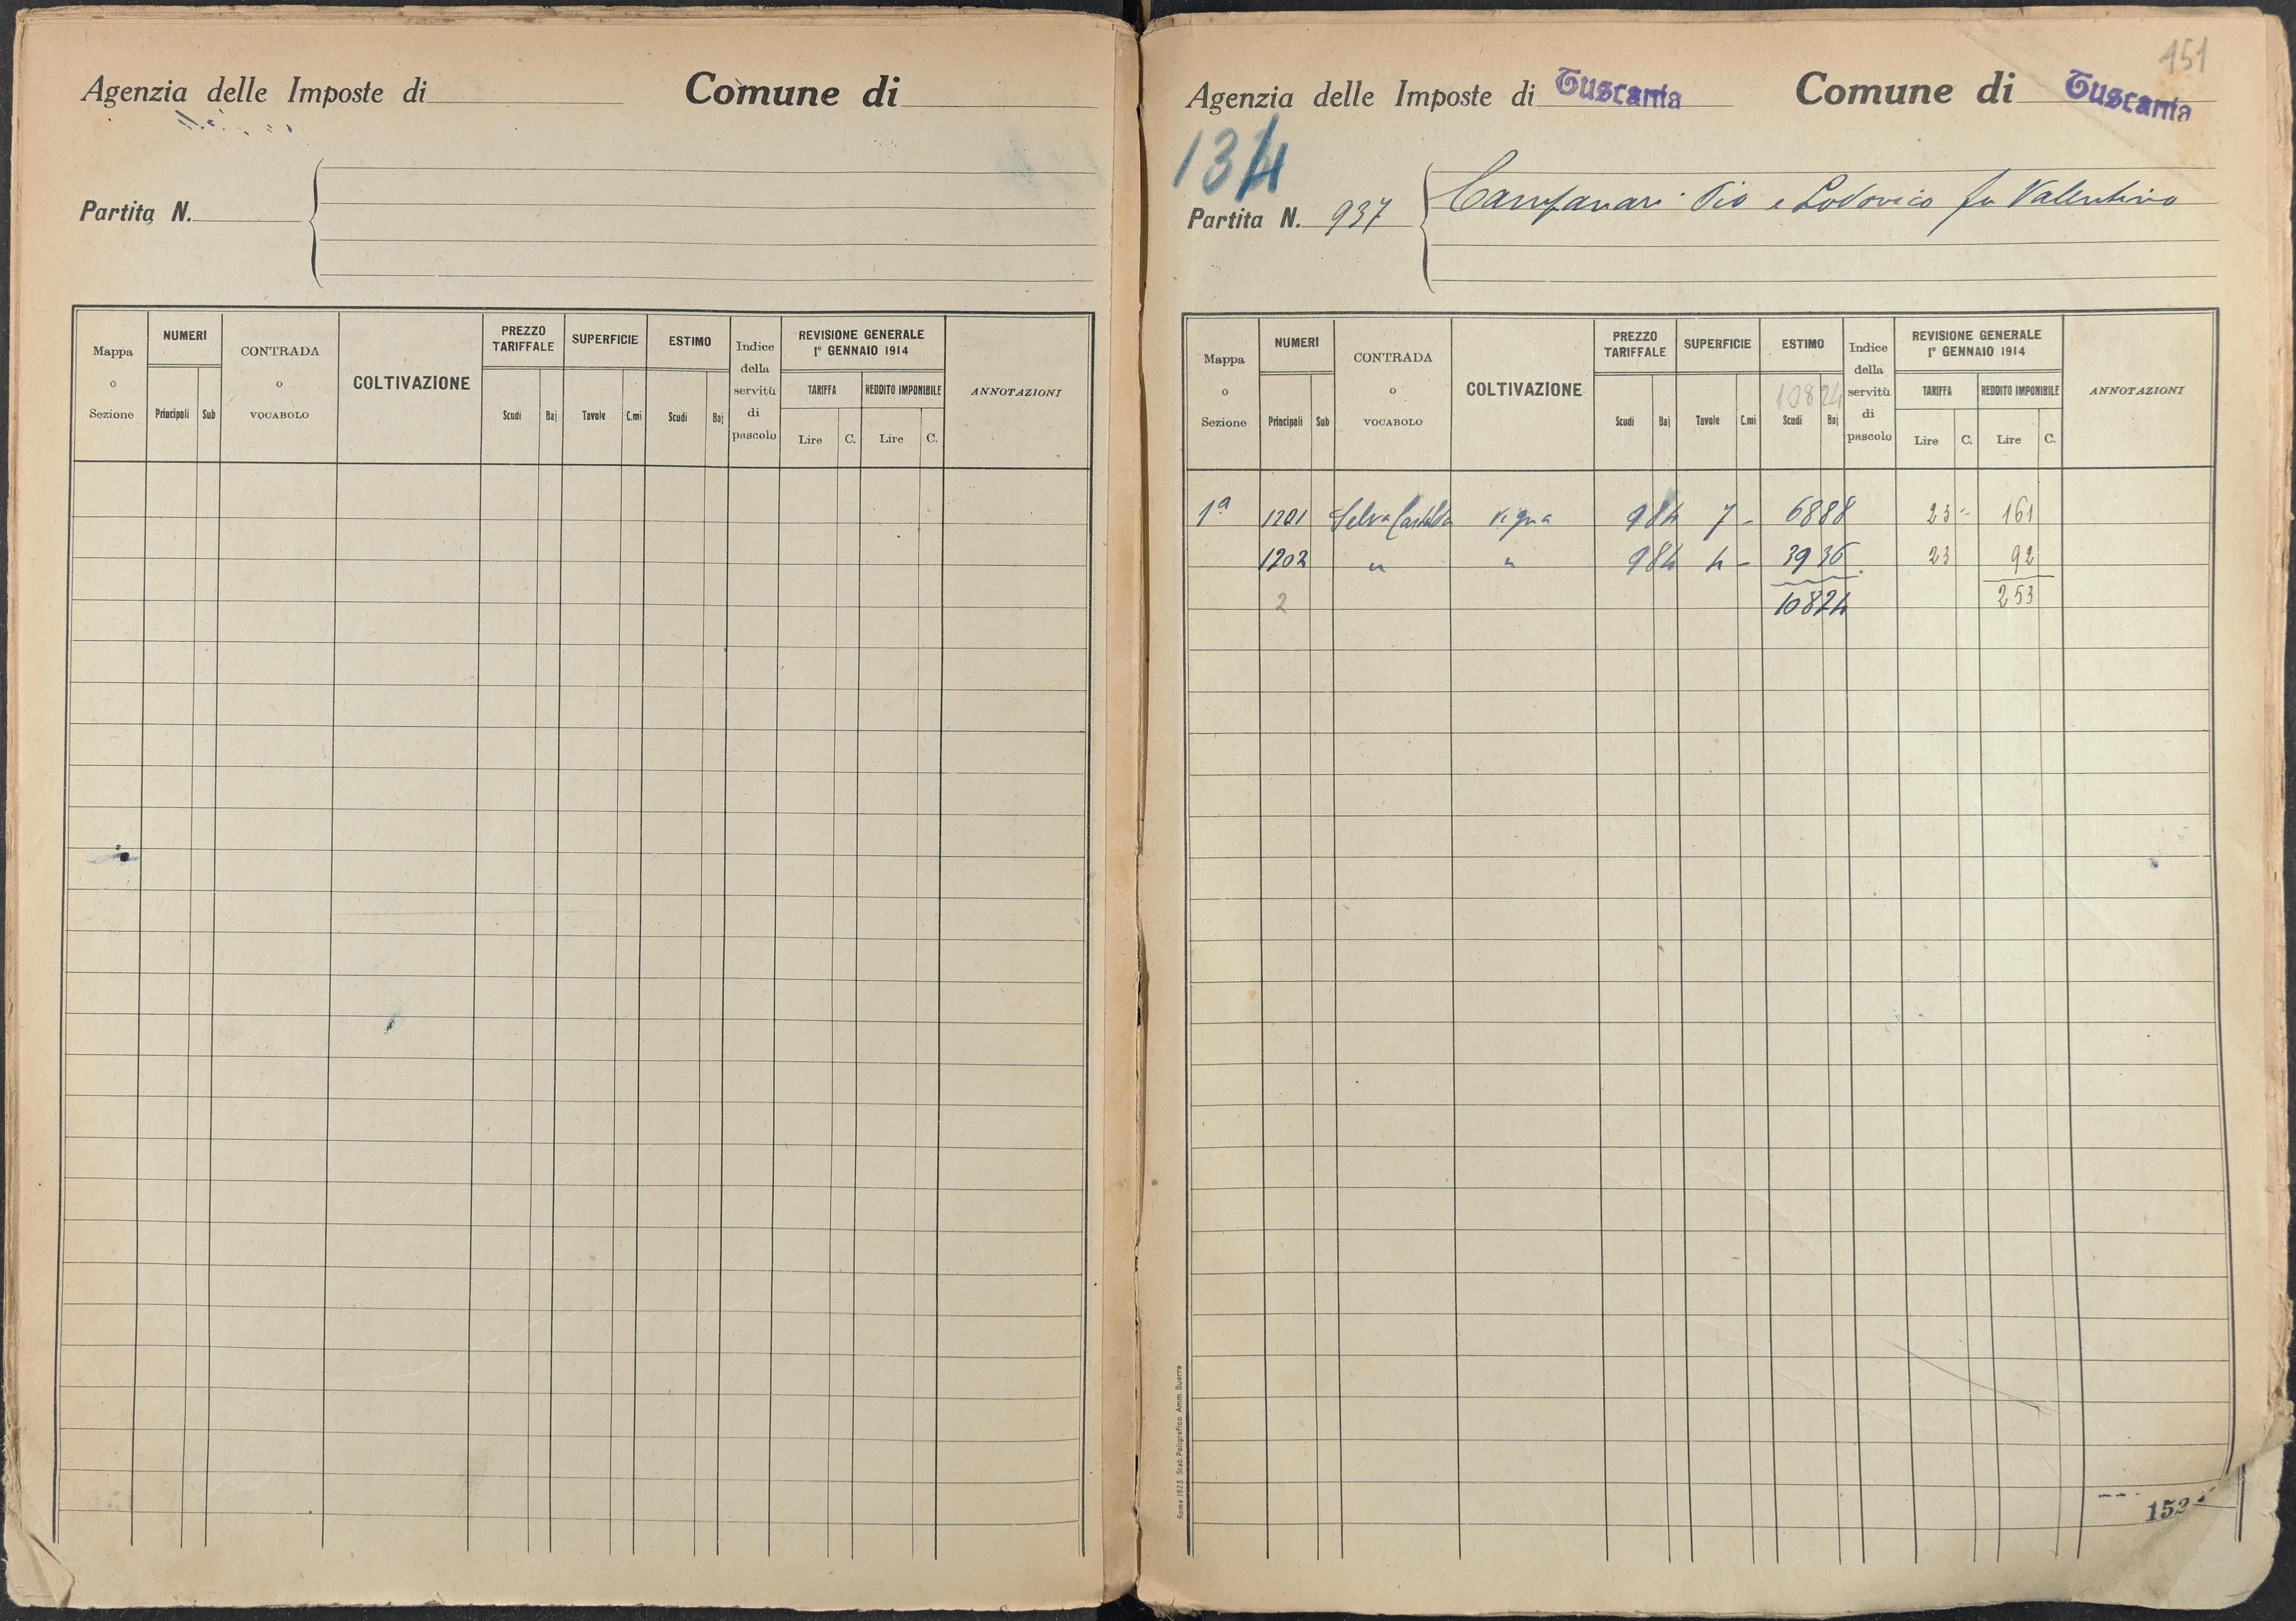 Agenzia delle Imposte di Comune di
Partita N.
Mappa o Sezione NUMERI CONTRADA o VOCABOLO COLTIVAZIONE PREZZO TARIFFALE SUPERFICIE ESTIMO Indice della servitù di pascolo REVISIONE GENERALE 1° GENNAIO 1914 ANNOTAZIONI
TARIFFA REDDITO IMPONIBILE
Principali Sub Scudi Baj Tavole C.mi Scudi Baj Lire C. Lire C.
151
Agenzia delle Imposte di Tuscania Comune di Tuscania
134
Partita N. 937 Campanari Pio e Lodovico fu Valentino
Mappa o Sezione NUMERI CONTRADA o VOCABOLO COLTIVAZIONE PREZZO TARIFFALE SUPERFICIE ESTIMO Indice della servitù di pascolo REVISIONE GENERALE 1° GENNAIO 1914 ANNOTAZIONI
10824 TARIFFA REDDITO IMPONIBILE
Principali Sub Scudi Baj Tavole C.mi Scudi Baj Lire C. Lire C.
1ª 1201 Selva Vigna 984 7 - 6888 23 - 161
1202 " " 984 4 - 3936 23 92
2 10824 253
Roma 1923 Stab. Poligrafico Amm. Guerra
152